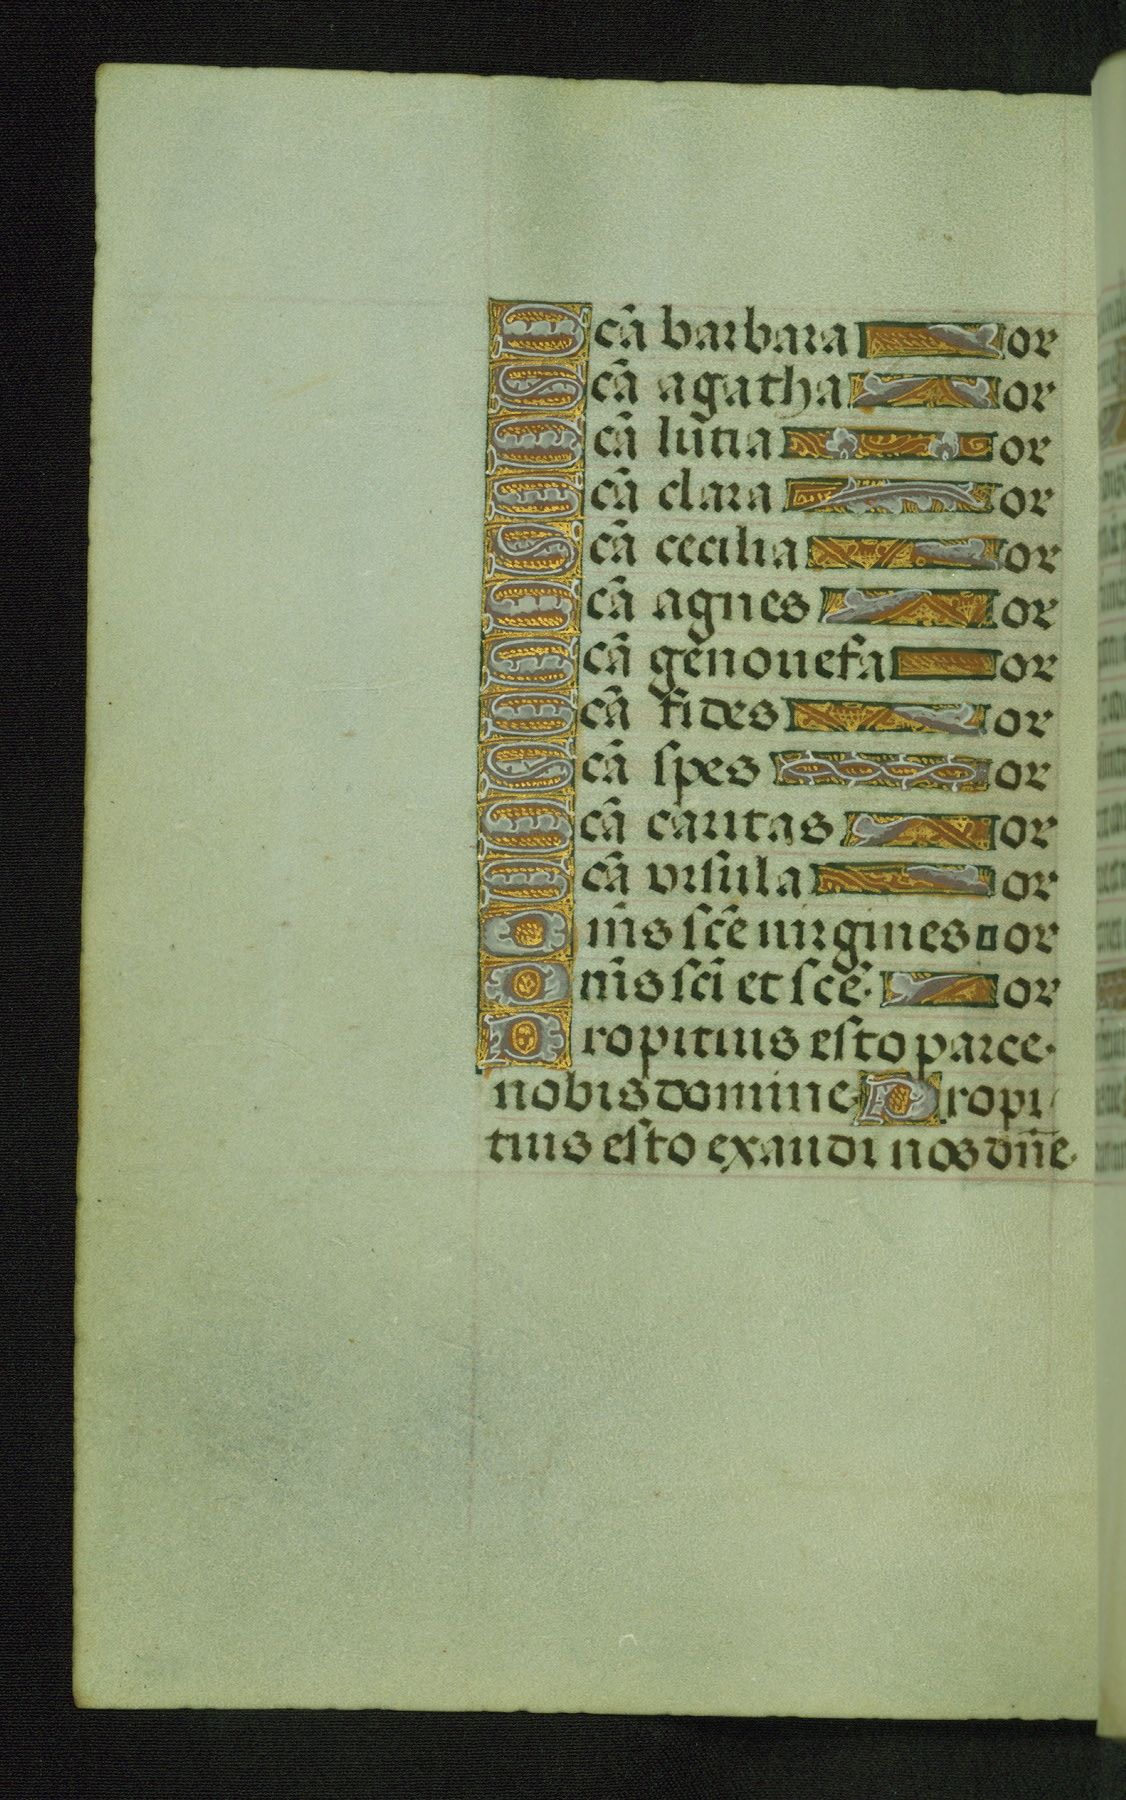 Scã barbara or
Scã agatha or
Scã lucia or
Scã clara or
Scã cecilia or
Scã agnes or
Scã genouefa or
Scã fides or
Scã spes or
Scã caritas or
Scã vrsula or
Om̃s scẽ uirgines or
Om̃s sci et scẽ. or
Propitius esto parce.
nobis domine Propi
tius esto exaudi nos dñe.